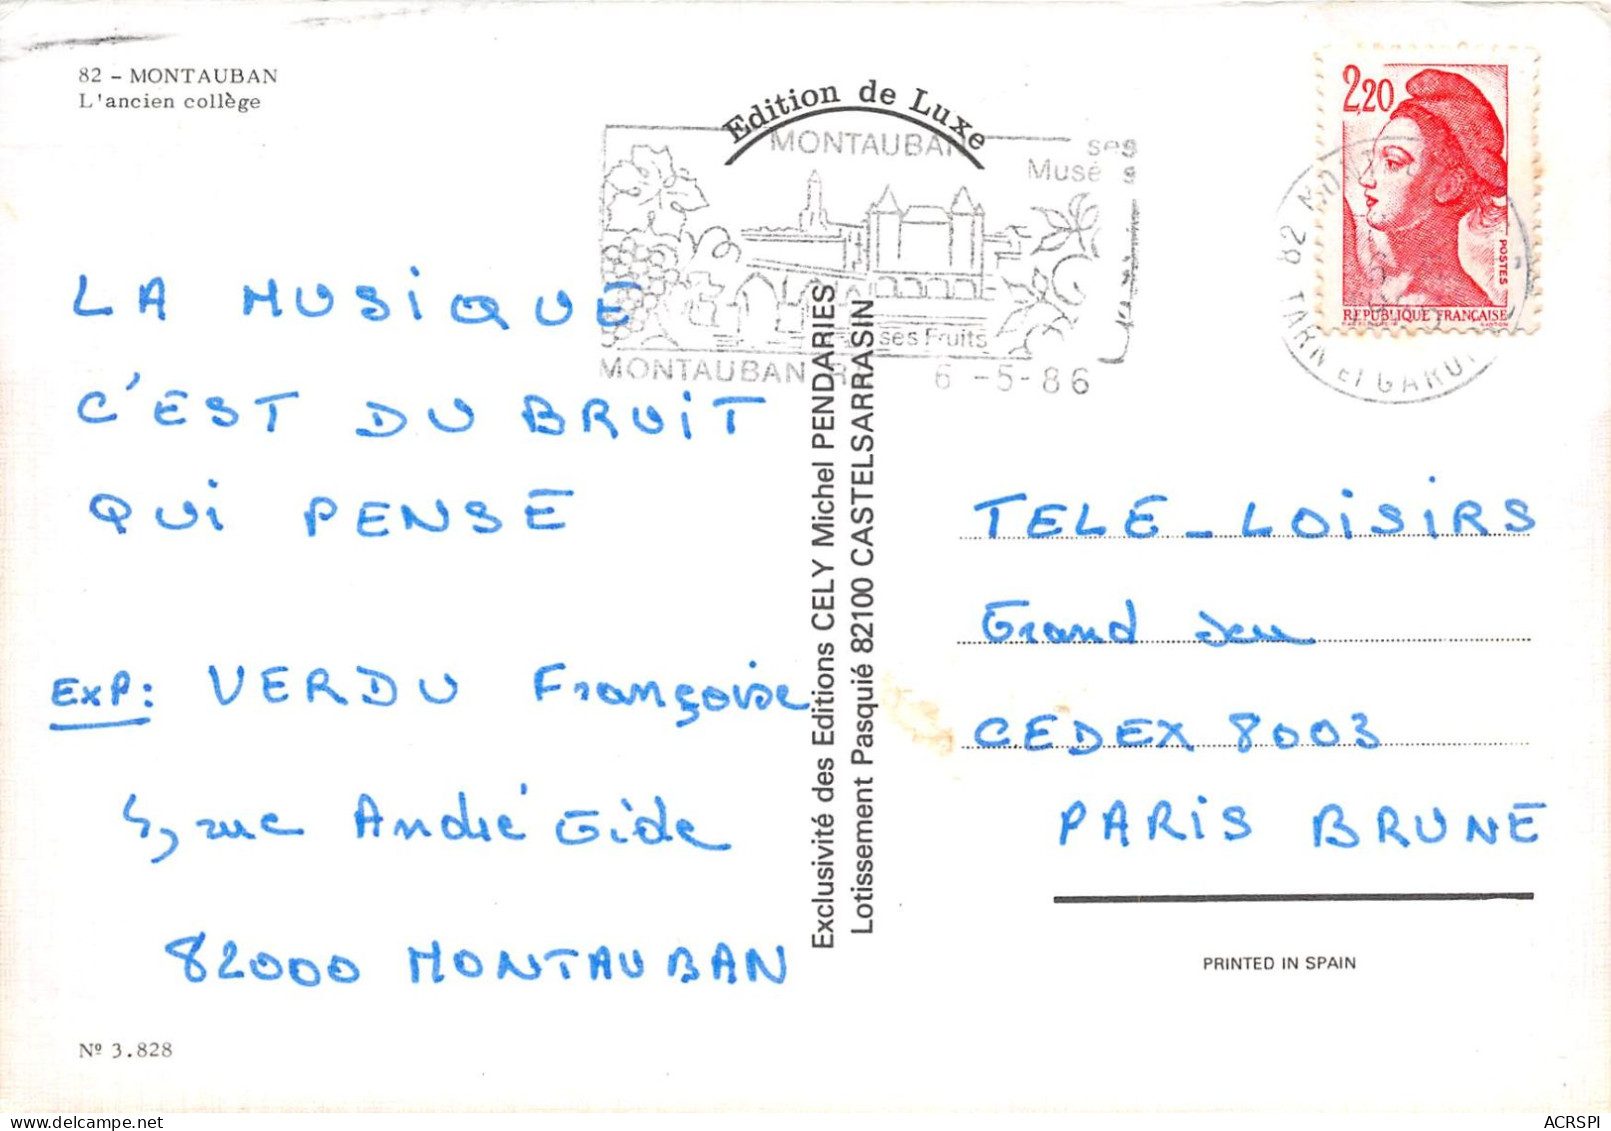 82 - MONTAUBAN
L'ancien collège
Edition de Luxe
MONTAUBAN
ses
Musées
ses Fruits
MONTAUBAN
6 -5-86
2,20
POSTES
REPUBLIQUE FRANÇAISE
82
TARN ET GARONNE
LA MUSIQUE
C'EST DU BRUIT
QUI PENSE
EXP: VERDU Françoise
5, rue André Gide
82000 MONTAUBAN
Nº 3.828
Exclusivité des Editions CELY Michel PENDARIES
Lotissement Pasquié 82100 CASTELSARRASIN
TELE-LOISIRS
Grand Jeu
CEDEX 8003
PARIS BRUNE
PRINTED IN SPAIN
ACRSPI